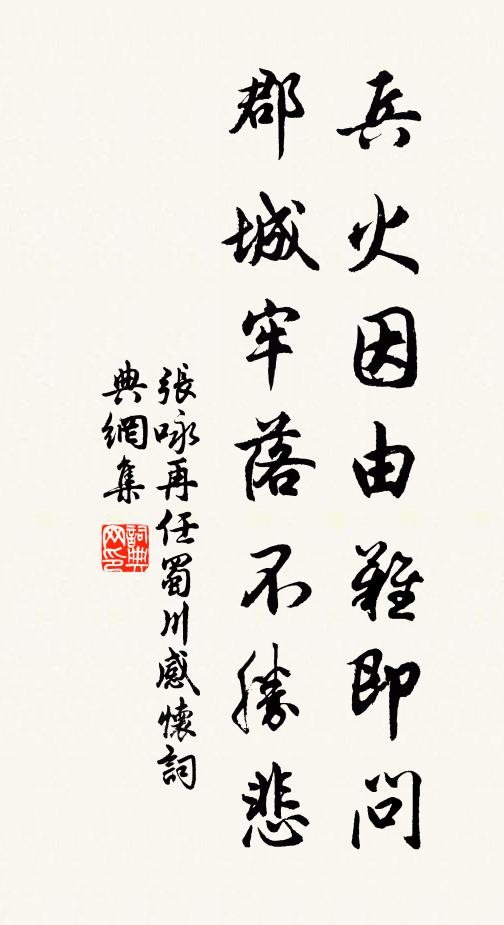 兵火因由難即問
郡城牢落不勝悲
張咏再任蜀川感懷詞
典網集
詞典
网印